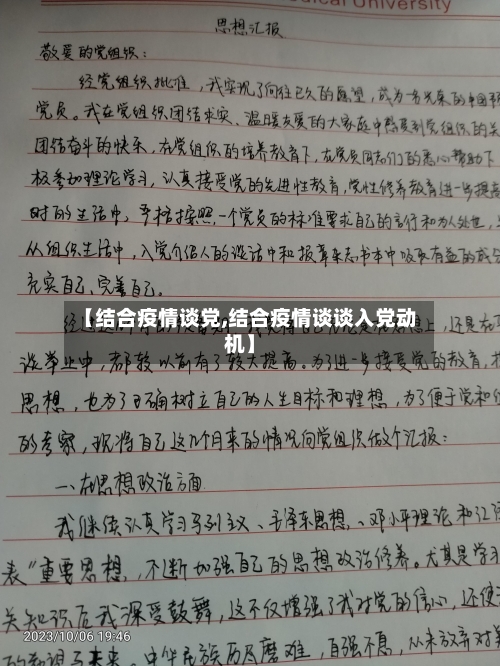 Medical University
思想汇报
敬爱的党组织:
经党组织批准,我实现了向往已久的愿望,成为一名光荣的中国
党员。我在党组织团结求实、温暖友爱的大家庭中感受到党组织的关
团结奋斗的快乐,在党组织的培养教育下,在党员同志们的悉心帮助下
极参加理论学习,认真接受党的先进性教育,党性修养教育进一步提高
时的生活中,严格按照一个党员的标准要求自己的言行和为人处世,
从组织生活中,入党介绍人的谈话中和报章杂志书本中吸取有益的成分
充实自己,完善自己。
【结合疫情谈党,结合疫情谈谈入党动
机】
经过这 上,还是在
谈举止中,都较以前有了较大提高。为了进一步接受党的教育,
思想,也为了正确树立自己的人生目标和理想,为了便于党和
的考察,现将自己这几个月来的情况向党组织做个汇报:
一、在思想政治方面
我继续认真学习马列主义、毛泽东思想、邓小平理论和江泽
表”重要思想,不断加强自己的思想政治修养。尤其是学
关知识后我深受鼓舞,这不仅增强了我对党的信心,还使
2023/10/06 19:46
的 未来。中华民族历尽磨难,自强不息,从未放弃对